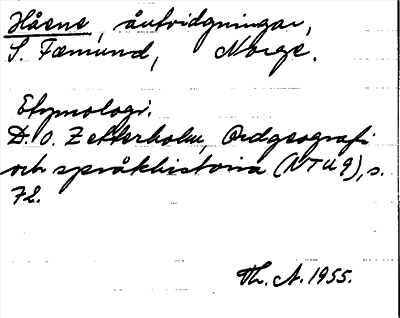 Håene, åutvidgningar,
S. Fæmund, Norge.
Etymologi.
D. O. Zetterholm, Ordgeografi
och språkhistoria (NTU 9), s.
72.
Th. A. 1955.